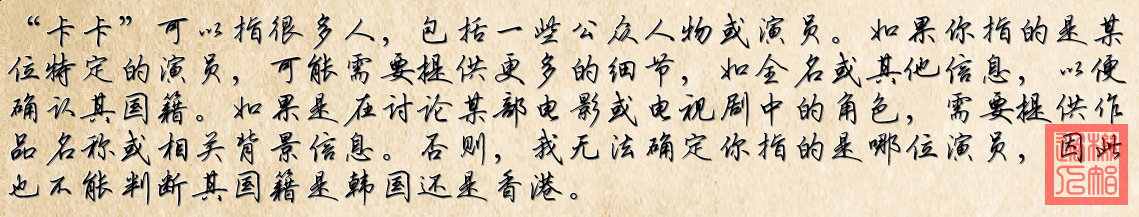 “卡卡”可以指很多人，包括一些公众人物或演员。如果你指的是某
位特定的演员，可能需要提供更多的细节，如全名或其他信息，以便
确认其国籍。如果是在讨论某部电影或电视剧中的角色，需要提供作
品名称或相关背景信息。否则，我无法确定你指的是哪位演员，因此
也不能判断其国籍是韩国还是香港。